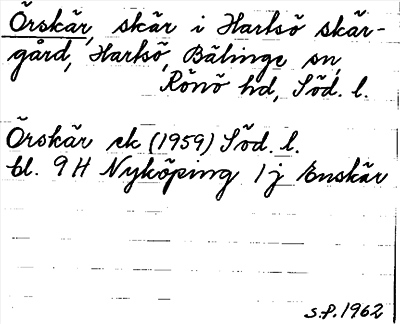 Örskär, skär i Hartsö skär-
gård, Hartsö, Bälinge sn,
Rönö hd, Söd. l.
Örskär ek (1959) Söd. l.
bl. 9H Nyköping 1j Enskär
S.P. 1962